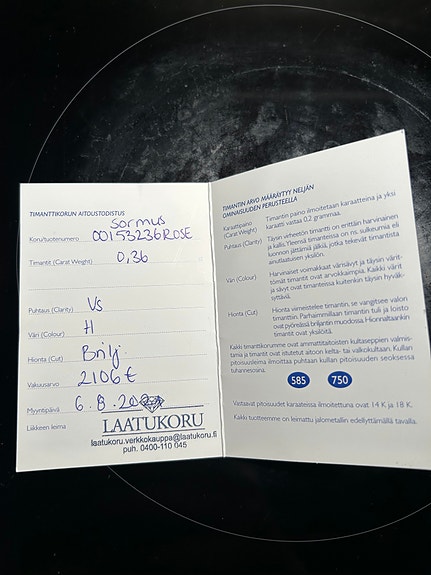 TIMANTTIKORUN AITOUSTODISTUS
Sormus
Koru/tuotenumero 00153236ROSE
Timantit (Carat Weight) 0,36
Puhtaus (Clarity) Vs
Väri (Colour) H
Hionta (Cut) Brilj.
Vakuusarvo 2106€
Myyntipäivä 6.8.20
Liikkeen leima
LAATUKORU
laatukoru.verkkokauppa@laatukoru.fi
puh. 0400-110 045
TIMANTIN ARVO MÄÄRÄYTYY NELJÄN
OMINAISUUDEN PERUSTEELLA
Karaattipaino
(Carat Weight)
Timantin paino ilmoitetaan karaatteina ja yksi
karaatti vastaa 0,2 grammaa.
Puhtaus (Clarity)
Täysin virheetön timantti on erittäin harvinainen
ja kallis. Yleensä timanteissa on ns. sulkeumia eli
luonnon jättämiä jälkiä, jotka tekevät timantista
ainutlaatuisen yksilön.
Väri (Colour)
Harvinaiset voimakkaat värisävyt ja täysin värit-
tömät timantit ovat arvokkaimpia. Kaikki värit
ja sävyt ovat timanteissa kuitenkin täysin hyväk-
syttäviä.
Hionta (Cut)
Hionta viimeistelee timantin, se vangitsee valon
timanttiin. Parhaimmillaan timantin tuli ja loisto
ovat pyöreissä briljantin muodossa. Hionnaltaankin
timantit ovat yksilöitä.
Kaikki timanttikorumme ovat ammattitaitoisten kultaseppien valmis-
tamia ja timantit on istutettu aitoon kelta- tai valkokultaan. Kullan
pitoisuusleima ilmoittaa puhtaan kullan pitoisuuden seoksessa
tuhannesosina.
585 750
Vastaavat pitoisuudet karaateissa ilmoitettuna ovat 14 K ja 18 K.
Kaikki tuotteemme on leimattu jalometallin edellyttämällä tavalla.